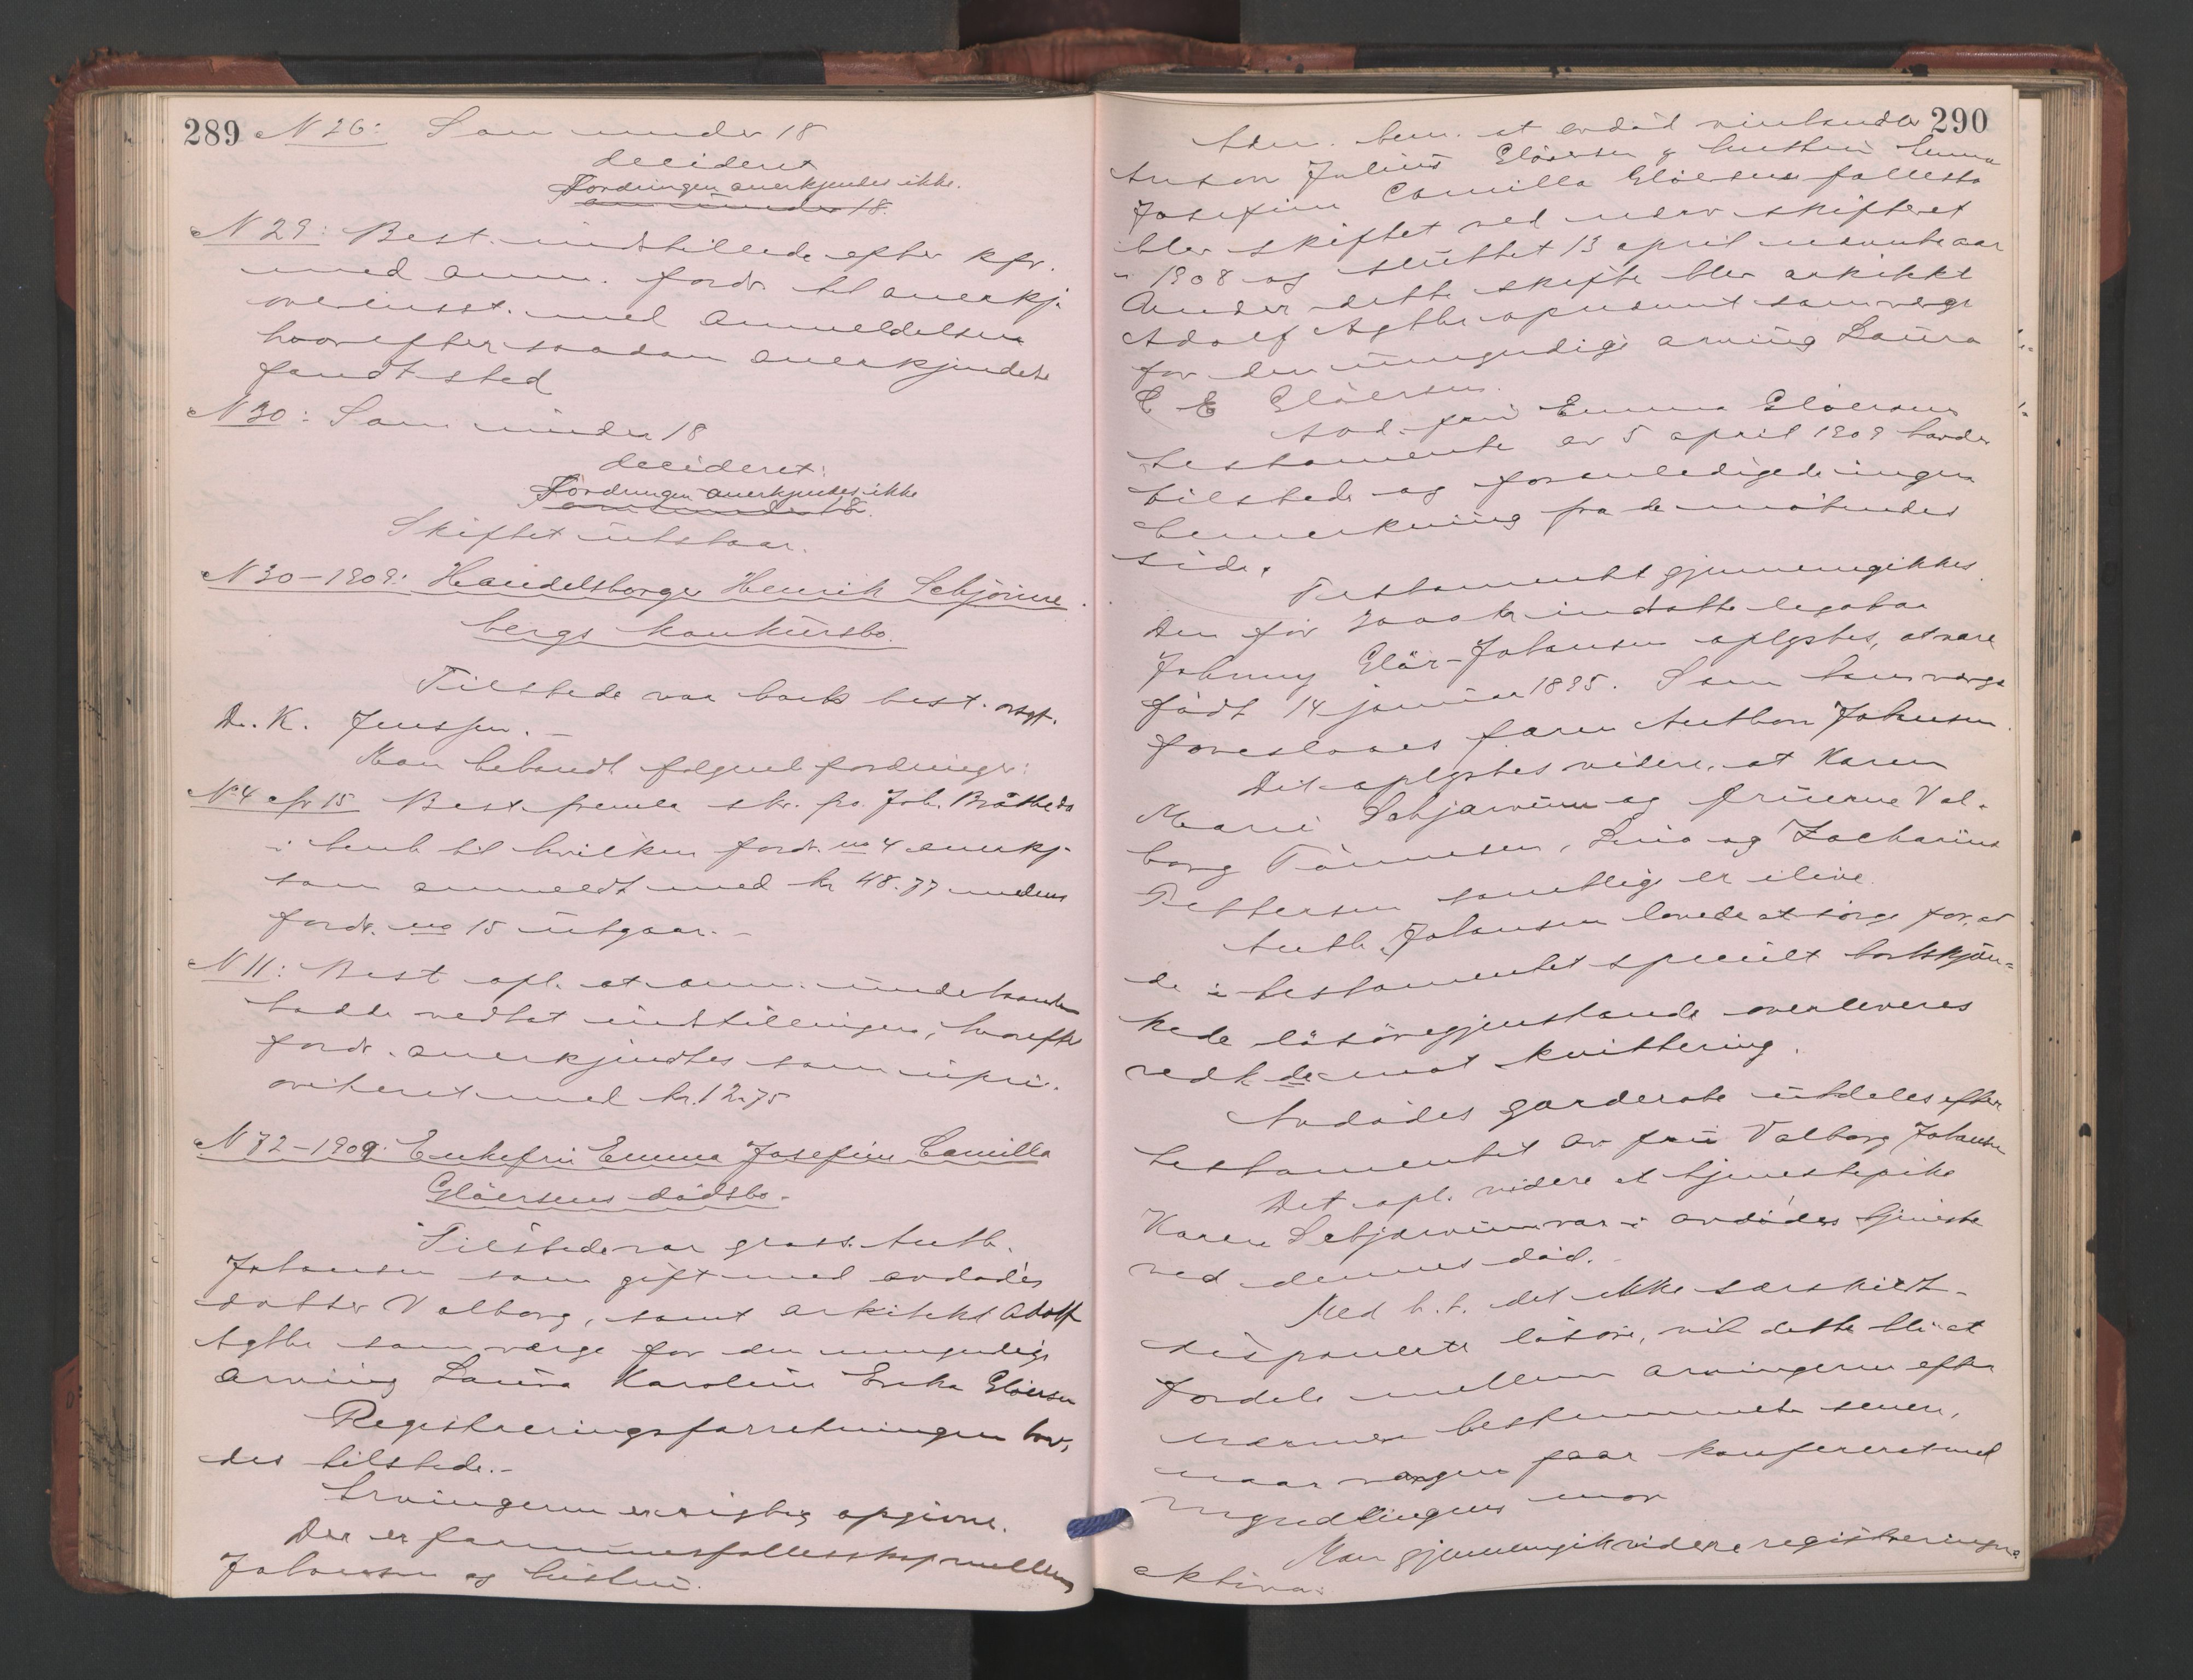 289 N 26: Som under 18
decideret
Fordringen anerkjendes ikke.
som under 18.
N 29: Best. indstillede efter kfr.
med anm. fordr. til anerkj.
overensst. med anmeldelsen
hvorefter saadan anerkjendelse
fandt sted
N 30: Som under 18
decideret:
Fordringen anerkjendes ikke
som under 18.
Skiftet utstaar.
N 30-1909: Handelsborger Henrik Schjönne
bergs konkursbo.
Tilstede var boets best. orsgf.
Dr. K. Jenssen. -
Man behandl. følgende fordringer:
N 4 cfr 15 Best. freml. skr. fra Joh. Bråthe ds
i henh. til hvilken fordr. no 4 anerkj.
som anmeldt med kr 48.77 medens
fordr. no 15 utgaar. -
N 11: Best opl. at anm. underhaanden
hadde vedtat indstillingen, hvorefter
fordr. anerkjendtes som upri-
oriteret med kr. 12.75
N 72-1909: Enkefru Emma Josefine Camilla
Glöersens dödsbo.
Tilstede var gross. Anth.
Johansen som gift med avdödes
datter Valborg, samt arkitekt Adolf
Agthe som verge for den umyndige
arving Laura Karoline Erika Glöersen
Registreringsforretningen hav-
des tilstede. -
Arvingerne er rigtig opgivne.
Der er formuesfællesskap mellem
Johansen og hustru.
290
Adm. bem. at avdöd vinhandler
Anton Julius Glöersen & hustru Emma
Josefine Camilla Glöersens fællesbo
blev skiftet ved nærv. skifteret
i 1908 og sluttet 13 april nævnte aar
Under dette skifte blev arkitekt
Adolf Agthe opnævnt som verge
for den umyndige arving Laura
C E Glöersen.
Avd. fru Emma Glöersens
testamente av 5 april 1909 havdes
tilstede og foranledigede ingen
bemerkning fra de mötendes
side.
Testamentet gjennemgikkes.
Den for 2000 kr indsatte legatar
Johnny Glör-Johansen oplystes, at være
födt 14 januar 1895. Som hans verge
foreslaaes faren Anthon Johansen.
Det oplystes videre, at Karen
Marie Schjarvium og fruerne Val-
borg Tönnesen, Lina og Zacharine
Pettersen samtlige er ilive.
Anth. Johansen lovede at sörge for, at
de i testamentet specielt bortskjæn-
kede lösöregjenstande overleveres
vedk. de mot kvittering.
Avdödes garderobe utdeles efter
testamentet av fru Valborg Johansen
Det opl. videre at tjenestepike
Karen Schjarvium var i avdödes tjeneste
ved dennes död.
Med h. t. det ikke særskilt
disponerte lösöre, vil dette bli at
fordele mellem arvingerne efter
nærmere bestemmelse senere,
naar vergen faar konfereret med
myndlingens mor
Man gjennemgik videre registreringens
aktiva: